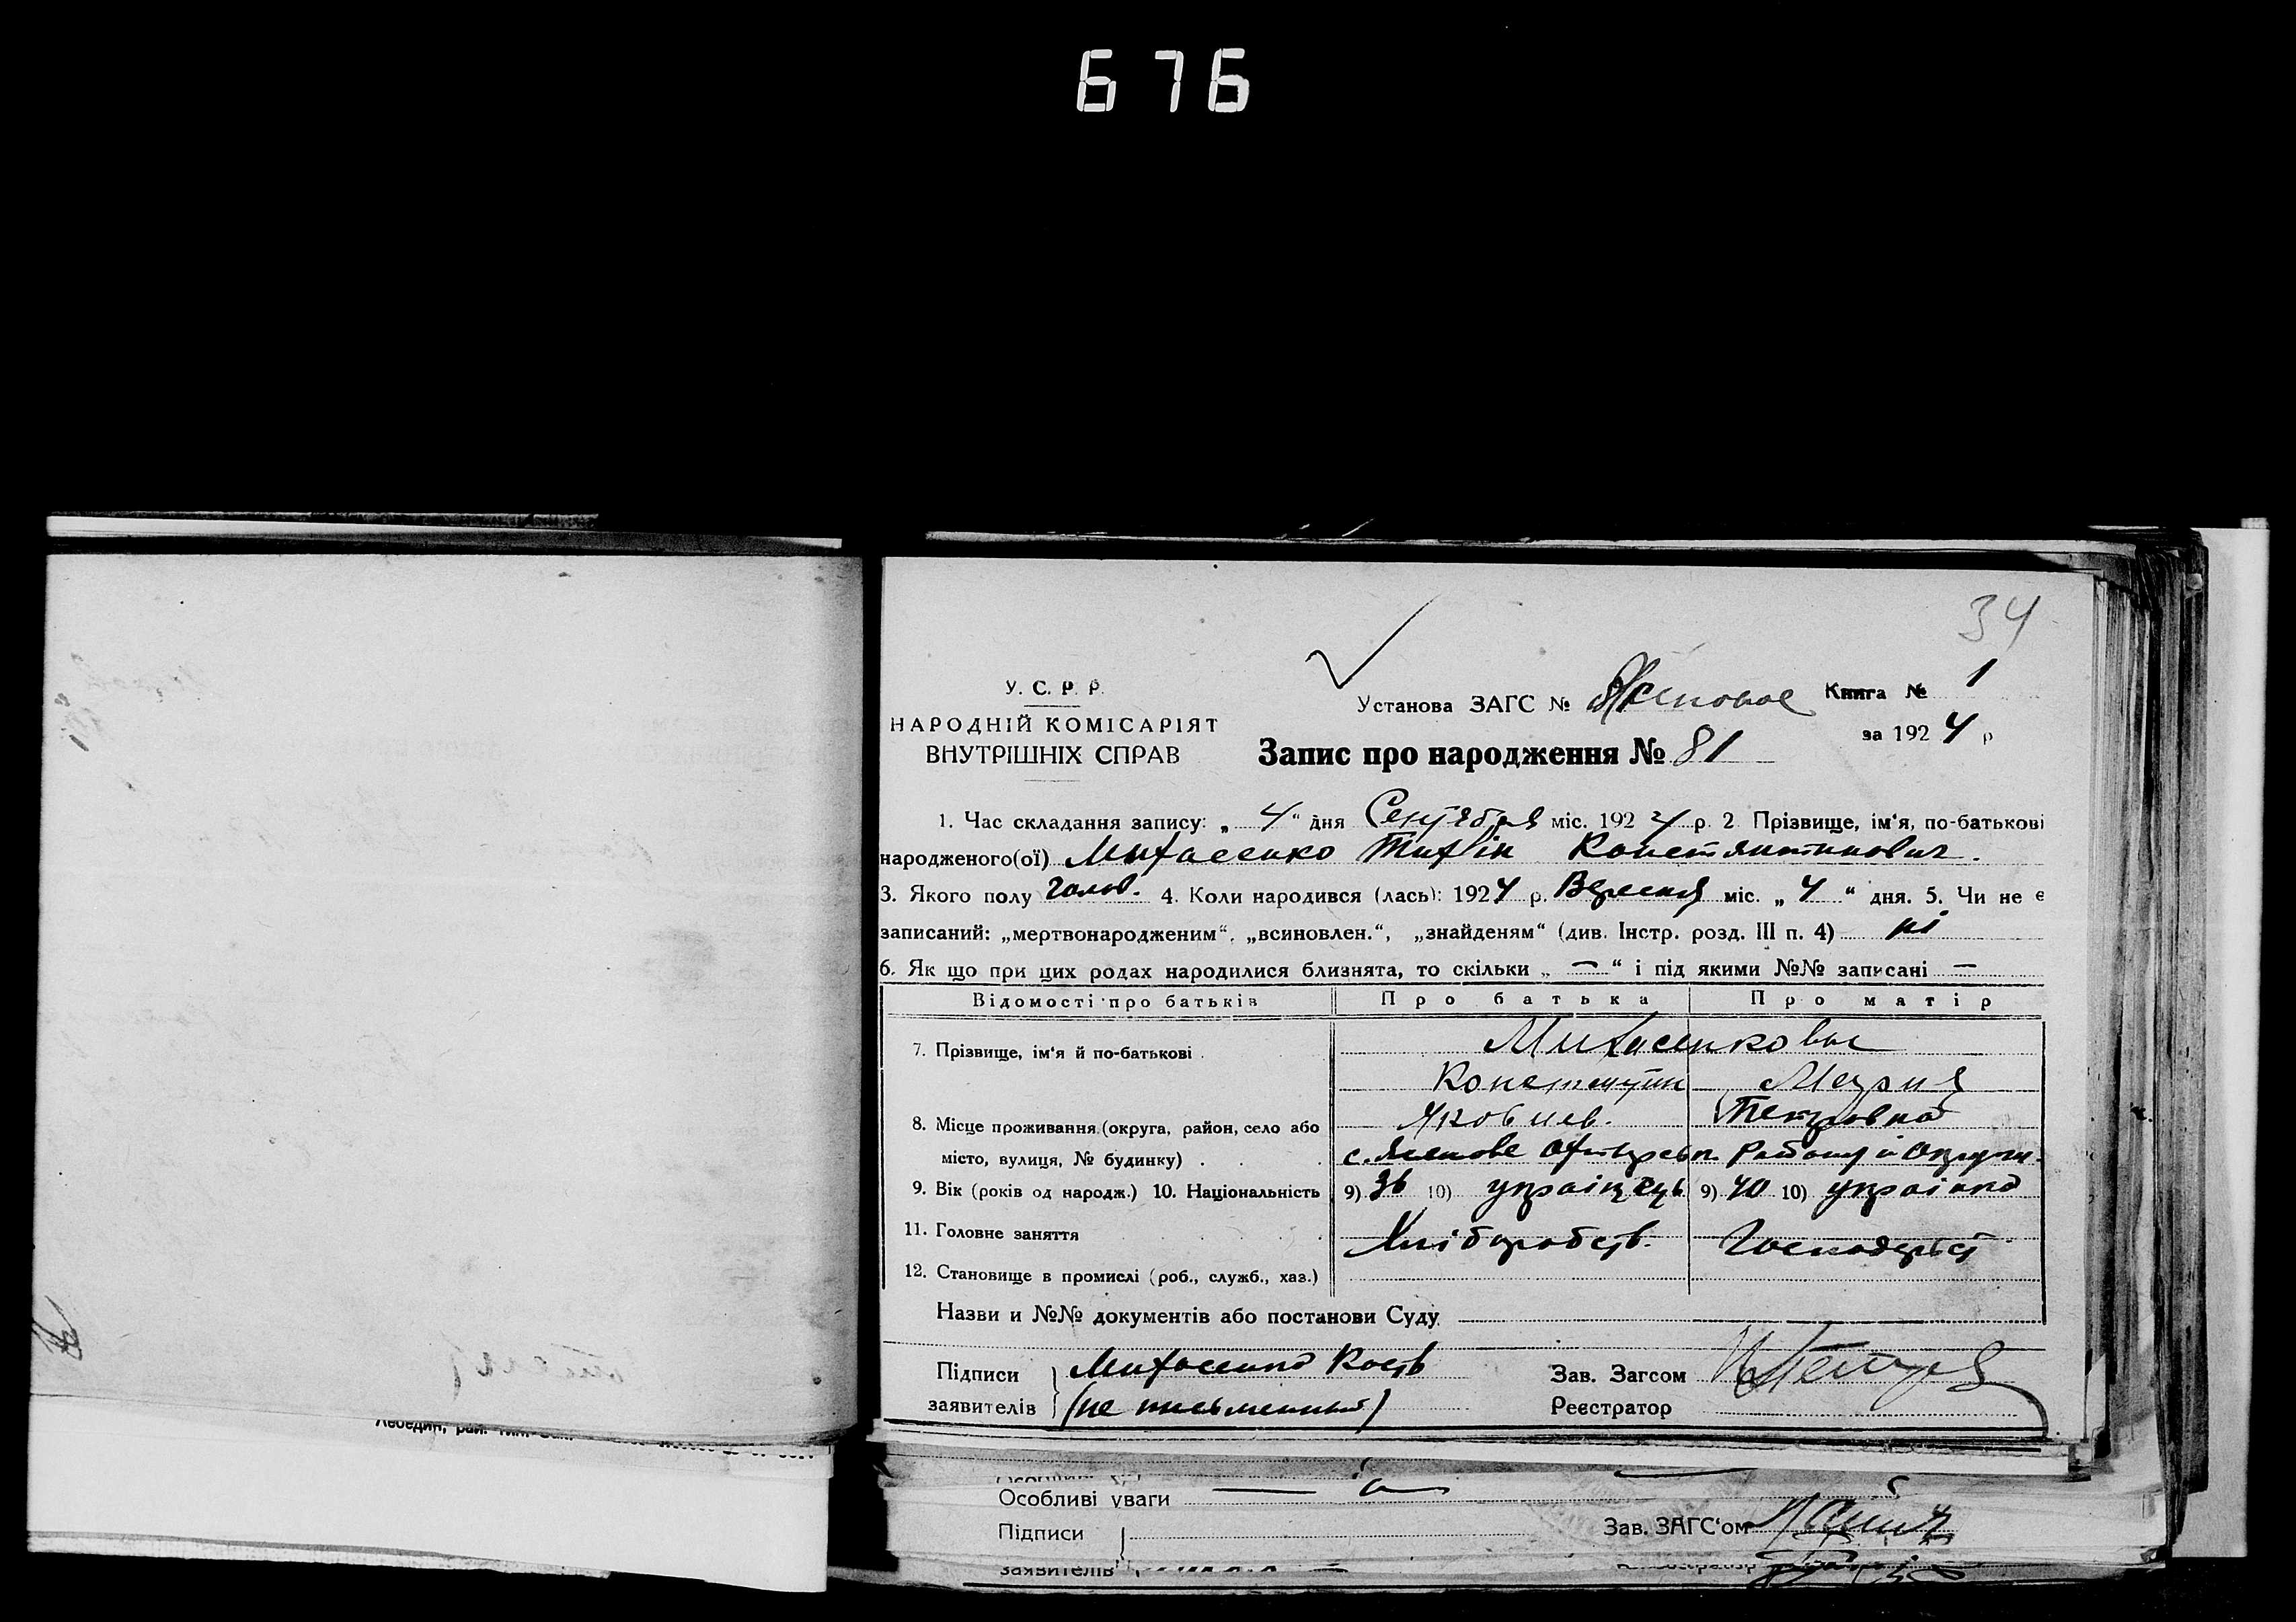 676
34
У. С. Р. Р.
Установа ЗАГС № Ясенове Книга № 1
НАРОДНІЙ КОМІСАРІЯТ
за 1924 р
ВНУТРІШНІХ СПРАВ
Запис про народження № 81
1. Час складання запису: „ 4 “ дня Сентября міс. 1924 р. 2 Прізвище, ім‘я, по-батькові
народженого(ої) Михасенко Тихін Констянтинович.
3. Якого полу чолов. 4. Коли народився (лась): 1924 р. Вересня міс. „ 4 “ дня. 5. Чи не є
записаний: „мертвонародженим“, „всиновлен.“, „знайденям“ (див. Інстр. розд. III п. 4) ні
6. Як що при цих родах народилися близнята, то скільки „ — “ і під якими №№ записані —
Відомості про батьків Про батька Про матір
7. Прізвище, ім‘я й по-батькові . Михасенковы
Константин Мария
8. Місце проживання (округа, район, село або Яковлев. Петровна
місто, вулиця, № будинку) . . . с. Ясенове
9. Вік (років од народж.) 10. Національність 9) 36 10) українець 9) 40 10) українка
11. Головне заняття Хліборобств. Господарст
12. Становище в промислі (роб., служб., хаз.)
Назви и №№ документів або постанови Суду
Підписи Михасенко Кость Зав. Загсом
заявителів (не письменный) Реєстратор
Особливі уваги
Підписи Зав. ЗАГС‘ом
заявителів
Лебедин, рай.